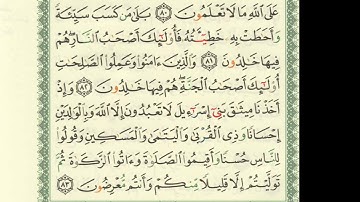 عَلَى ٱللَّهِ مَا لَا تَعْلَمُونَ ٨٠ بَلَىٰ مَن كَسَبَ سَيِّئَةً
وَأَحَٰطَتْ بِهِۦ خَطِيٓـَٔتُهُۥ فَأُو۟لَٰٓئِكَ أَصْحَٰبُ ٱلنَّارِ هُمْ
فِيهَا خَٰلِدُونَ ٨١ وَٱلَّذِينَ ءَامَنُوا۟ وَعَمِلُوا۟ ٱلصَّٰلِحَٰتِ
أُو۟لَٰٓئِكَ أَصْحَٰبُ ٱلْجَنَّةِ هُمْ فِيهَا خَٰلِدُونَ ٨٢ وَإِذْ
أَخَذْنَا مِيثَٰقَ بَنِىٓ إِسْرَٰٓءِيلَ لَا تَعْبُدُونَ إِلَّا ٱللَّهَ وَبِٱلْوَٰلِدَيْنِ
إِحْسَانًا وَذِى ٱلْقُرْبَىٰ وَٱلْيَتَٰمَىٰ وَٱلْمَسَٰكِينِ وَقُولُوا۟
لِلنَّاسِ حُسْنًا وَأَقِيمُوا۟ ٱلصَّلَوٰةَ وَءَاتُوا۟ ٱلزَّكَوٰةَ ثُمَّ
تَوَلَّيْتُمْ إِلَّا قَلِيلًا مِّنكُمْ وَأَنتُم مُّعْرِضُونَ ٨٣